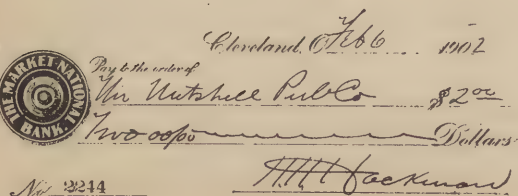 Cleveland, O Feb 6 1902
THE MARKET NATIONAL BANK.
Pay to the order of
The Nutshell Pub Co $2.00
Two 00/00 Dollars
No 2244